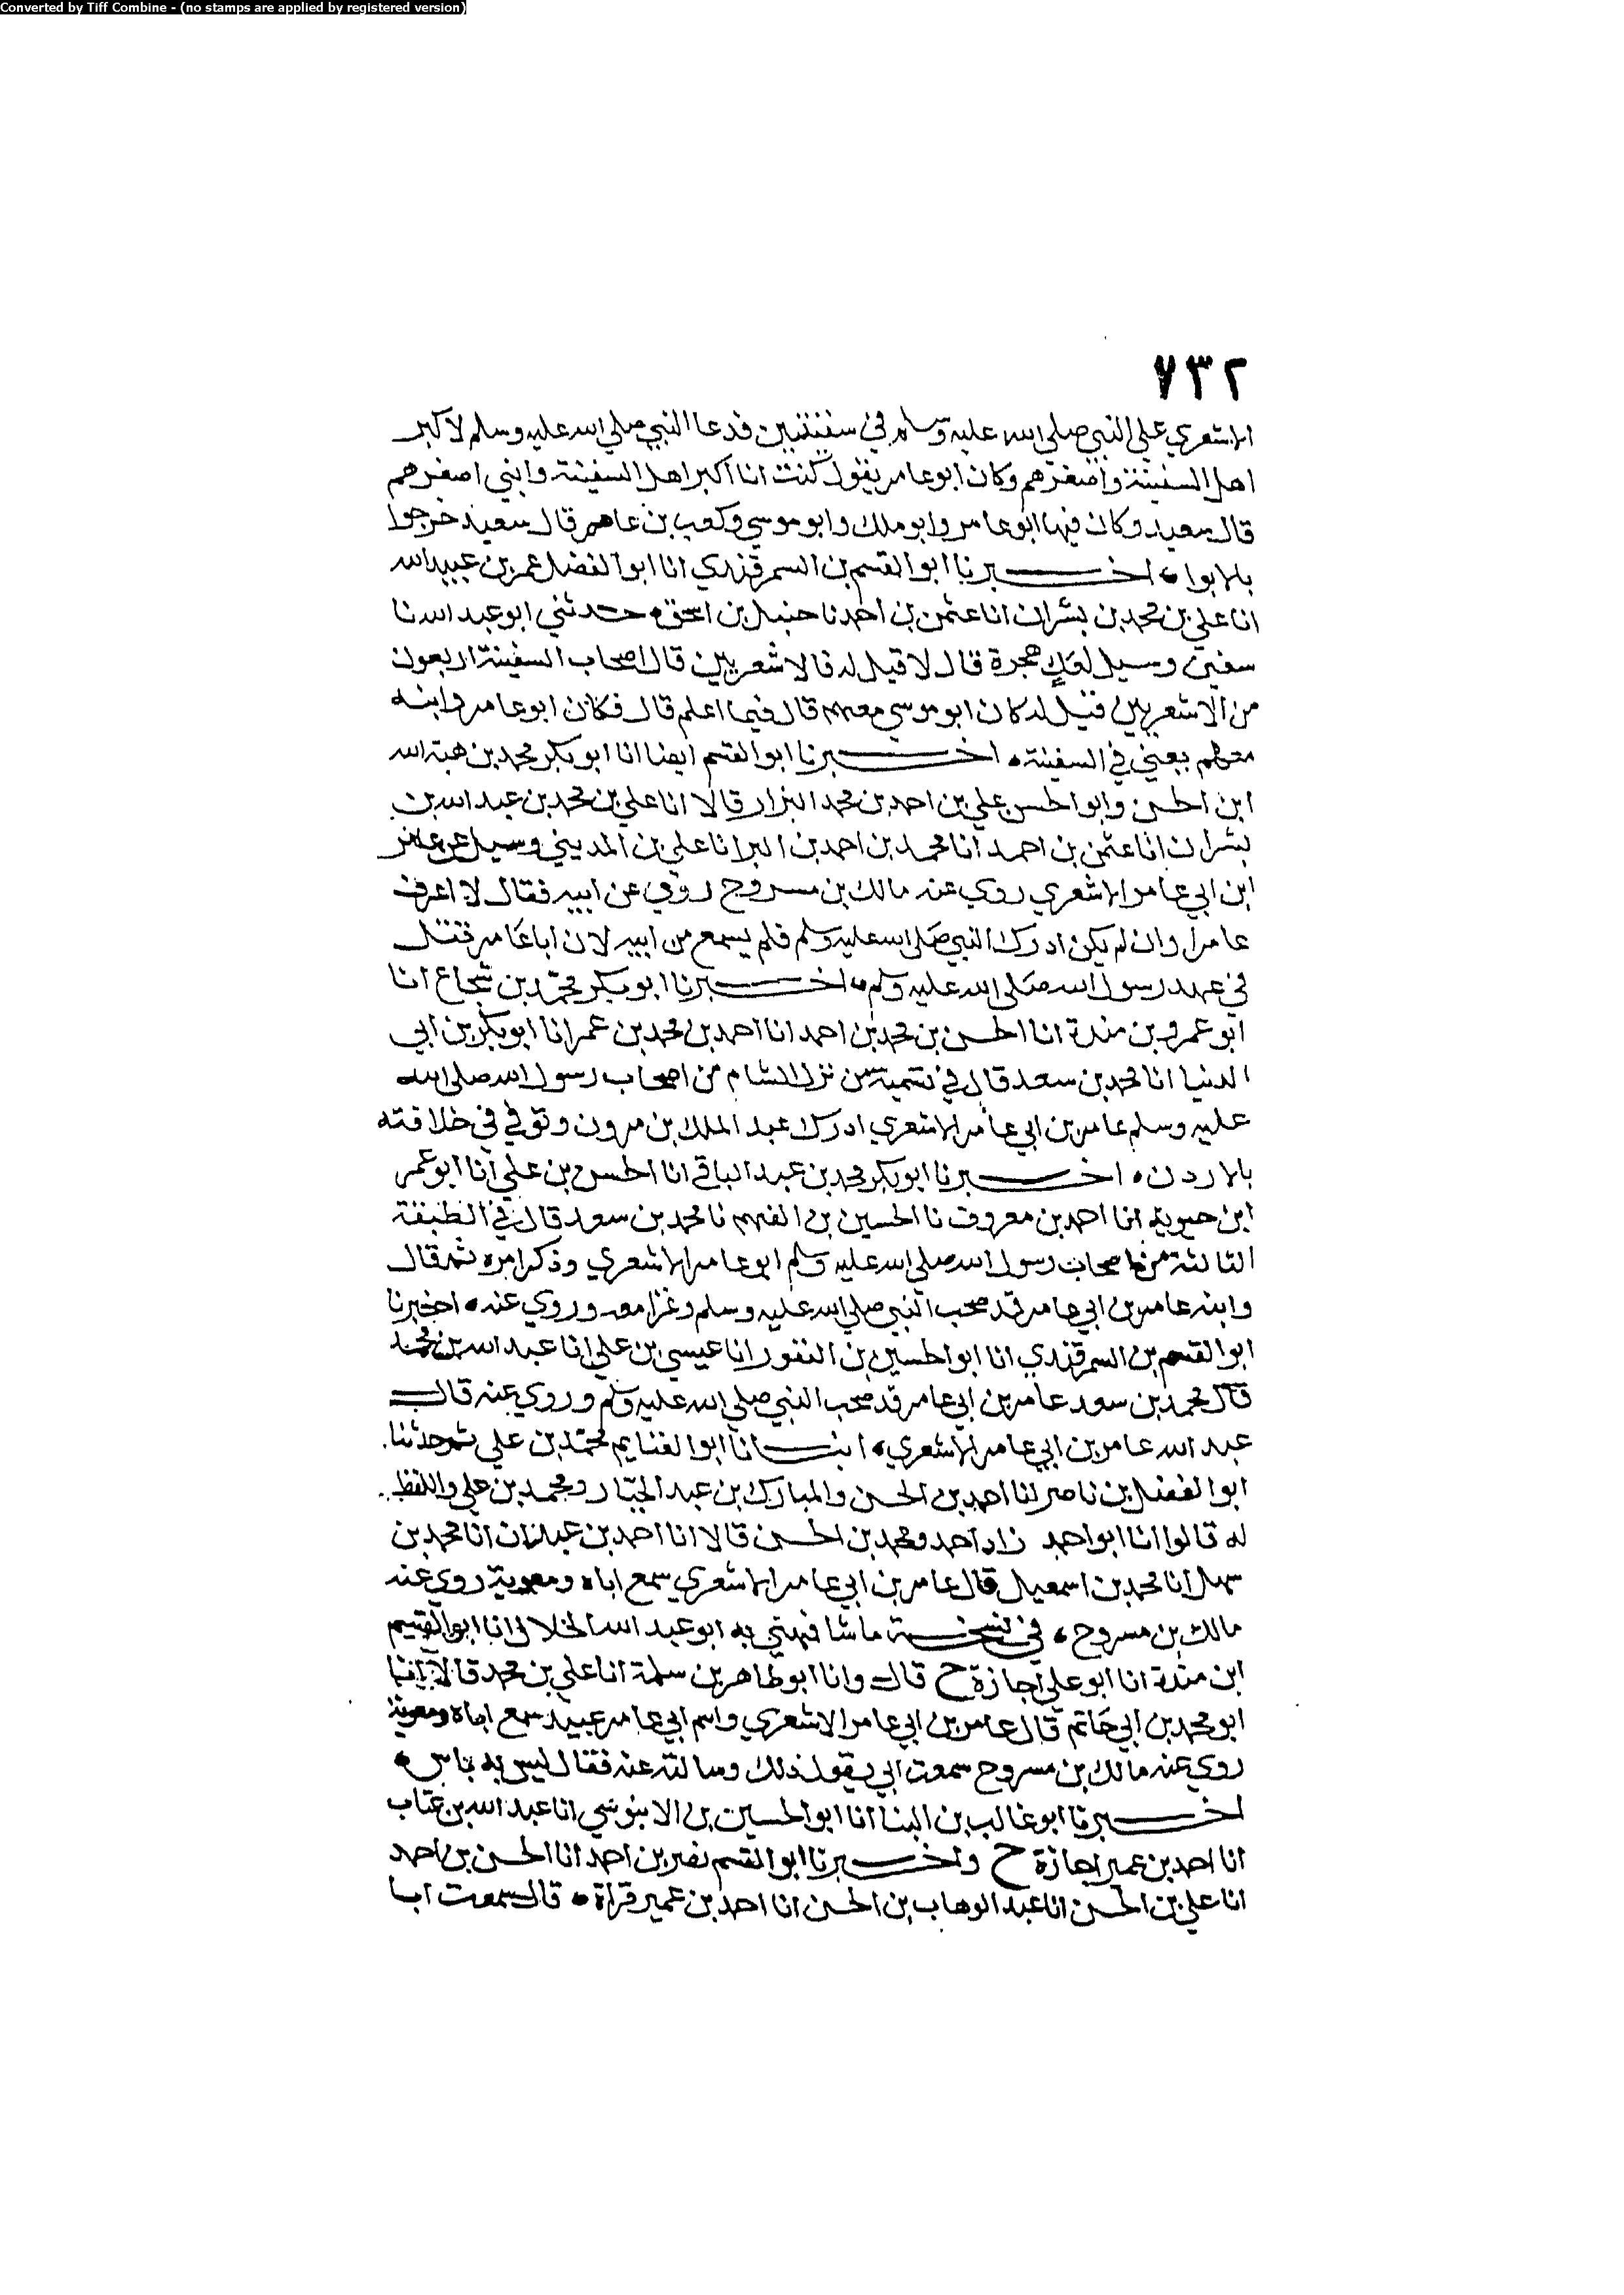 Converted by Tiff Combine - (no stamps are applied by registered version)
٧٣٢
الاشعري على النبي صلى الله عليه وسلم في سفينتين فدعا النبي صلى الله عليه وسلم لاكبر
اهل السفينة واصغرهم وكان ابو عامر يقول كنت انا اكبر اهل السفينة وابني اصغرهم
قال سعيد وكان فيها ابو عامر وابو ملك وابو موسى وكعب بن عاصم قال سعيد خرجوا
بالابوا ، اخبرنا ابو القسم بن السمرقندي انا ابو الفضل عمر بن عبيد الله
انا علي بن محمد بن بشران انا عثمن بن احمد نا حنبل بن اسحق ، حدثني ابو عبد الله نا
سفين وسيل لعك هجرة قال لا قيل له فالاشعريين قال اصحاب السفينة اربعون
من الاشعريين فقيل له كان ابو موسى معهم قال فيما اعلم قال فكان ابو عامر وابنه
معهم يعني في السفينة ، اخبرنا ابو القسم ايضا انا ابو بكر محمد بن هبة الله
ابن الحسن وابو الحسن علي بن احمد بن محمد البزار قالا انا علي بن محمد بن عبد الله بن
بشران انا عثمن بن احمد انا محمد بن احمد بن البرا نا علي بن المديني وسيل عن عامر
ابن ابي عامر الاشعري روى عنه مالك بن مسروح روى عن ابيه فقال لا اعرف
عامرا وان لم يكن ادرك النبي صلى الله عليه وسلم فلم يسمع من ابيه لان ابا عامر قتل
في عهد رسول الله صلى الله عليه وسلم ، اخبرنا ابو بكر محمد بن شجاع انا
ابو عمرو بن مندة انا الحسن بن محمد بن احمد انا احمد بن محمد بن عمر انا ابو بكر بن ابي
الدنيا انا محمد بن سعد قال في تسمية من نزل الشام من اصحاب رسول الله صلى الله
عليه وسلم عامر بن ابي عامر الاشعري ادرك عبد الملك بن مرون وتوفي في خلافته
بالاردن ، اخبرنا ابو بكر محمد بن عبد الباقي انا الحسن بن علي انا ابو عمر
ابن حيويه انا احمد بن معروف نا الحسين بن الفهم نا محمد بن سعد قال في الطبقة
الثالثة من اصحاب رسول الله صلى الله عليه وسلم ابو عامر الاشعري وذكر امره ثم قال
وابنه عامر بن ابي عامر قد صحب النبي صلى الله عليه وسلم وغزا معه وروى عنه ، اخبرنا
ابو القسم بن السمرقندي انا ابو الحسين بن النقور انا عيسى بن علي انا عبد الله بن محمد
قال محمد بن سعد عامر بن ابي عامر قد صحب النبي صلى الله عليه وسلم وروى عنه قال
عبد الله عامر بن ابي عامر الاشعري ، انبانا ابو الغنايم محمد بن علي ثم حدثنا
ابو الفضل بن ناصر انا احمد بن الحسن والمبارك بن عبد الجبار ومحمد بن علي واللفظ
له قالوا انا ابو احمد زاد احمد ومحمد بن الحسن قالا انا احمد بن عبدان انا محمد بن
سهل انا محمد بن اسمعيل قال عامر بن ابي عامر الاشعري سمع اباه ومعوية روى عنه
مالك بن مسروح ، في نسخة ما شافهني به ابو عبد الله الخلال انا ابو القسم
ابن مندة انا ابو علي اجازة ح قال وانا ابو طاهر بن سلمة انا علي بن محمد قالا انا
ابو محمد بن ابي حاتم قال عامر بن ابي عامر الاشعري واسم ابي عامر عبيد سمع اباه ومعوية
روى عنه مالك بن مسروح سمعت ابي يقول ذلك وسالته عنه فقال ليس به باس ،
اخبرنا ابو غالب بن البنا انا ابو الحسين بن الابنوسي انا عبد الله بن عتاب
انا احمد بن عمير اجازة ح واخبرنا ابو القسم نصر بن احمد انا الحسن بن احمد
انا علي بن الحسن انا عبد الوهاب بن الحسن انا احمد بن عمير قراة ، قال سمعت ابا